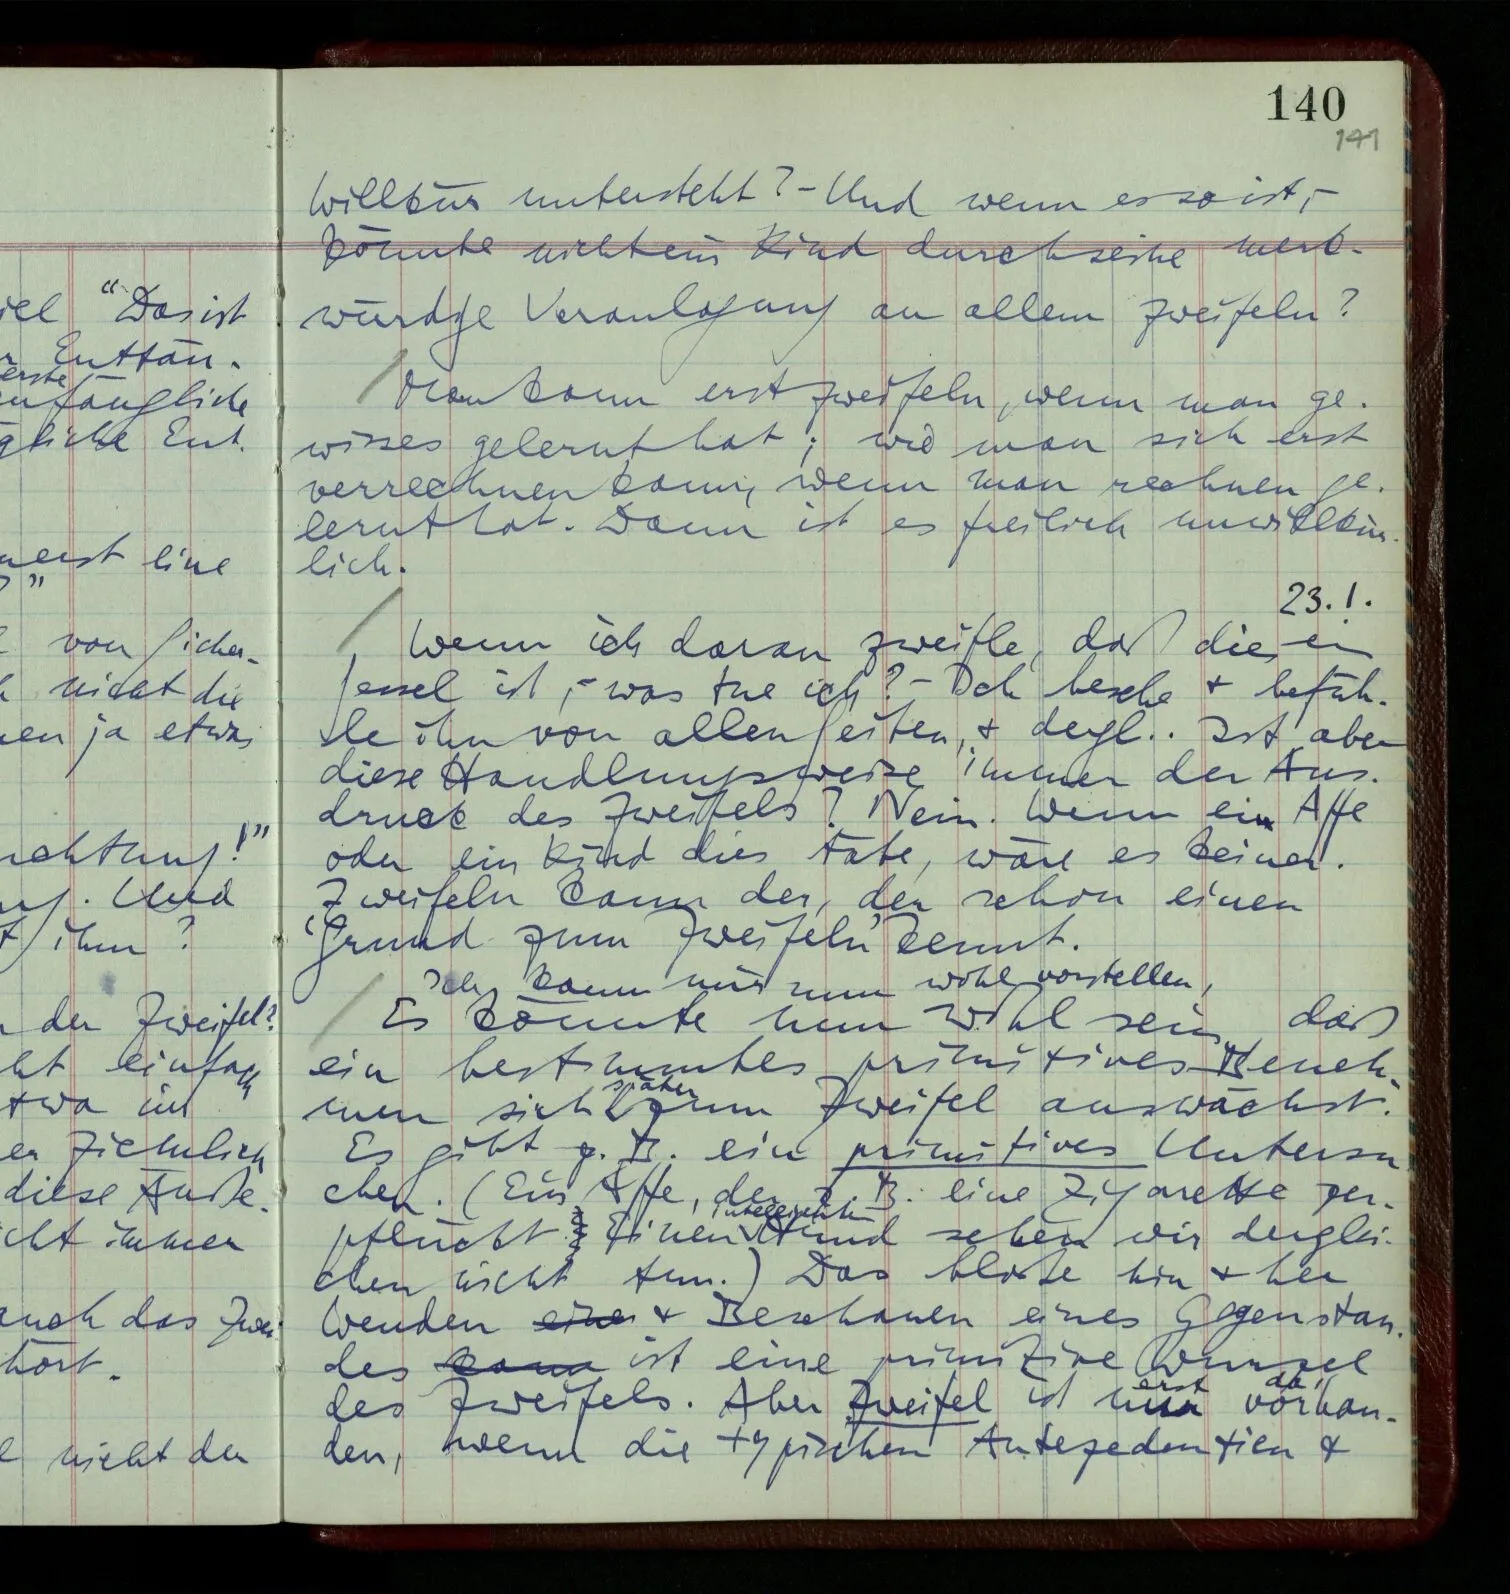 140
141
Willkür untersteht? – Und wenn es so ist, –
könnte nicht ein Kind durch seine merk-
würdge Veranlagung an allem zweifeln?
/ Man kann erst zweifeln, wenn man ge-
wisses gelernt hat; wie man sich erst
verrechnen kann, wenn man rechnen ge-
lernt hat. Dann ist es freilich unwillkür-
lich.
23.1.
/ Wenn ich daran zweifle, daß dies ein
Sessel ist, – was tue ich? – Ich besehe & befüh-
le ihn von allen Seiten, & dergl.. Ist aber
diese Handlungsweise immer der Aus-
druck des Zweifels? Nein. Wenn ein Affe
oder ein Kind dies täte, wäre es keiner.
Zweifeln kann der, der schon einen
'Grund zum Zweifeln' kennt.
Ich kann mir nun wohl vorstellen,
/ Es könnte nun wohl sein, daß
ein bestimmtes primitives Beneh-
men sich später zum Zweifel auswächst.
Es gibt z.B. ein primitives Untersu-
chen. (Ein Affe, der z.B. eine Zigarette zer-
pflückt. Einen intelligenten Hund sehen wir derglei-
chen nicht tun.) Das bloße hin & her
Wenden eines & Beschauen eines Gegenstan-
des kann ist eine primitive Wurzel
des Zweifels. Aber Zweifel ist nur erst da, vorhan-
den, wenn die typischen Antezedentien &
iel "Das ist
r Enttäu-
erste
anfängliche
gliche Ent-
uerst eine
?"
von Sicher-
h nicht die
nen ja etwas
achtung!"
Und
ihm?
der Zweifel?
ht einfach
etwa im
er ziemlich
diese Äuße-
icht immer
auch das Zwei-
hört.
nicht der